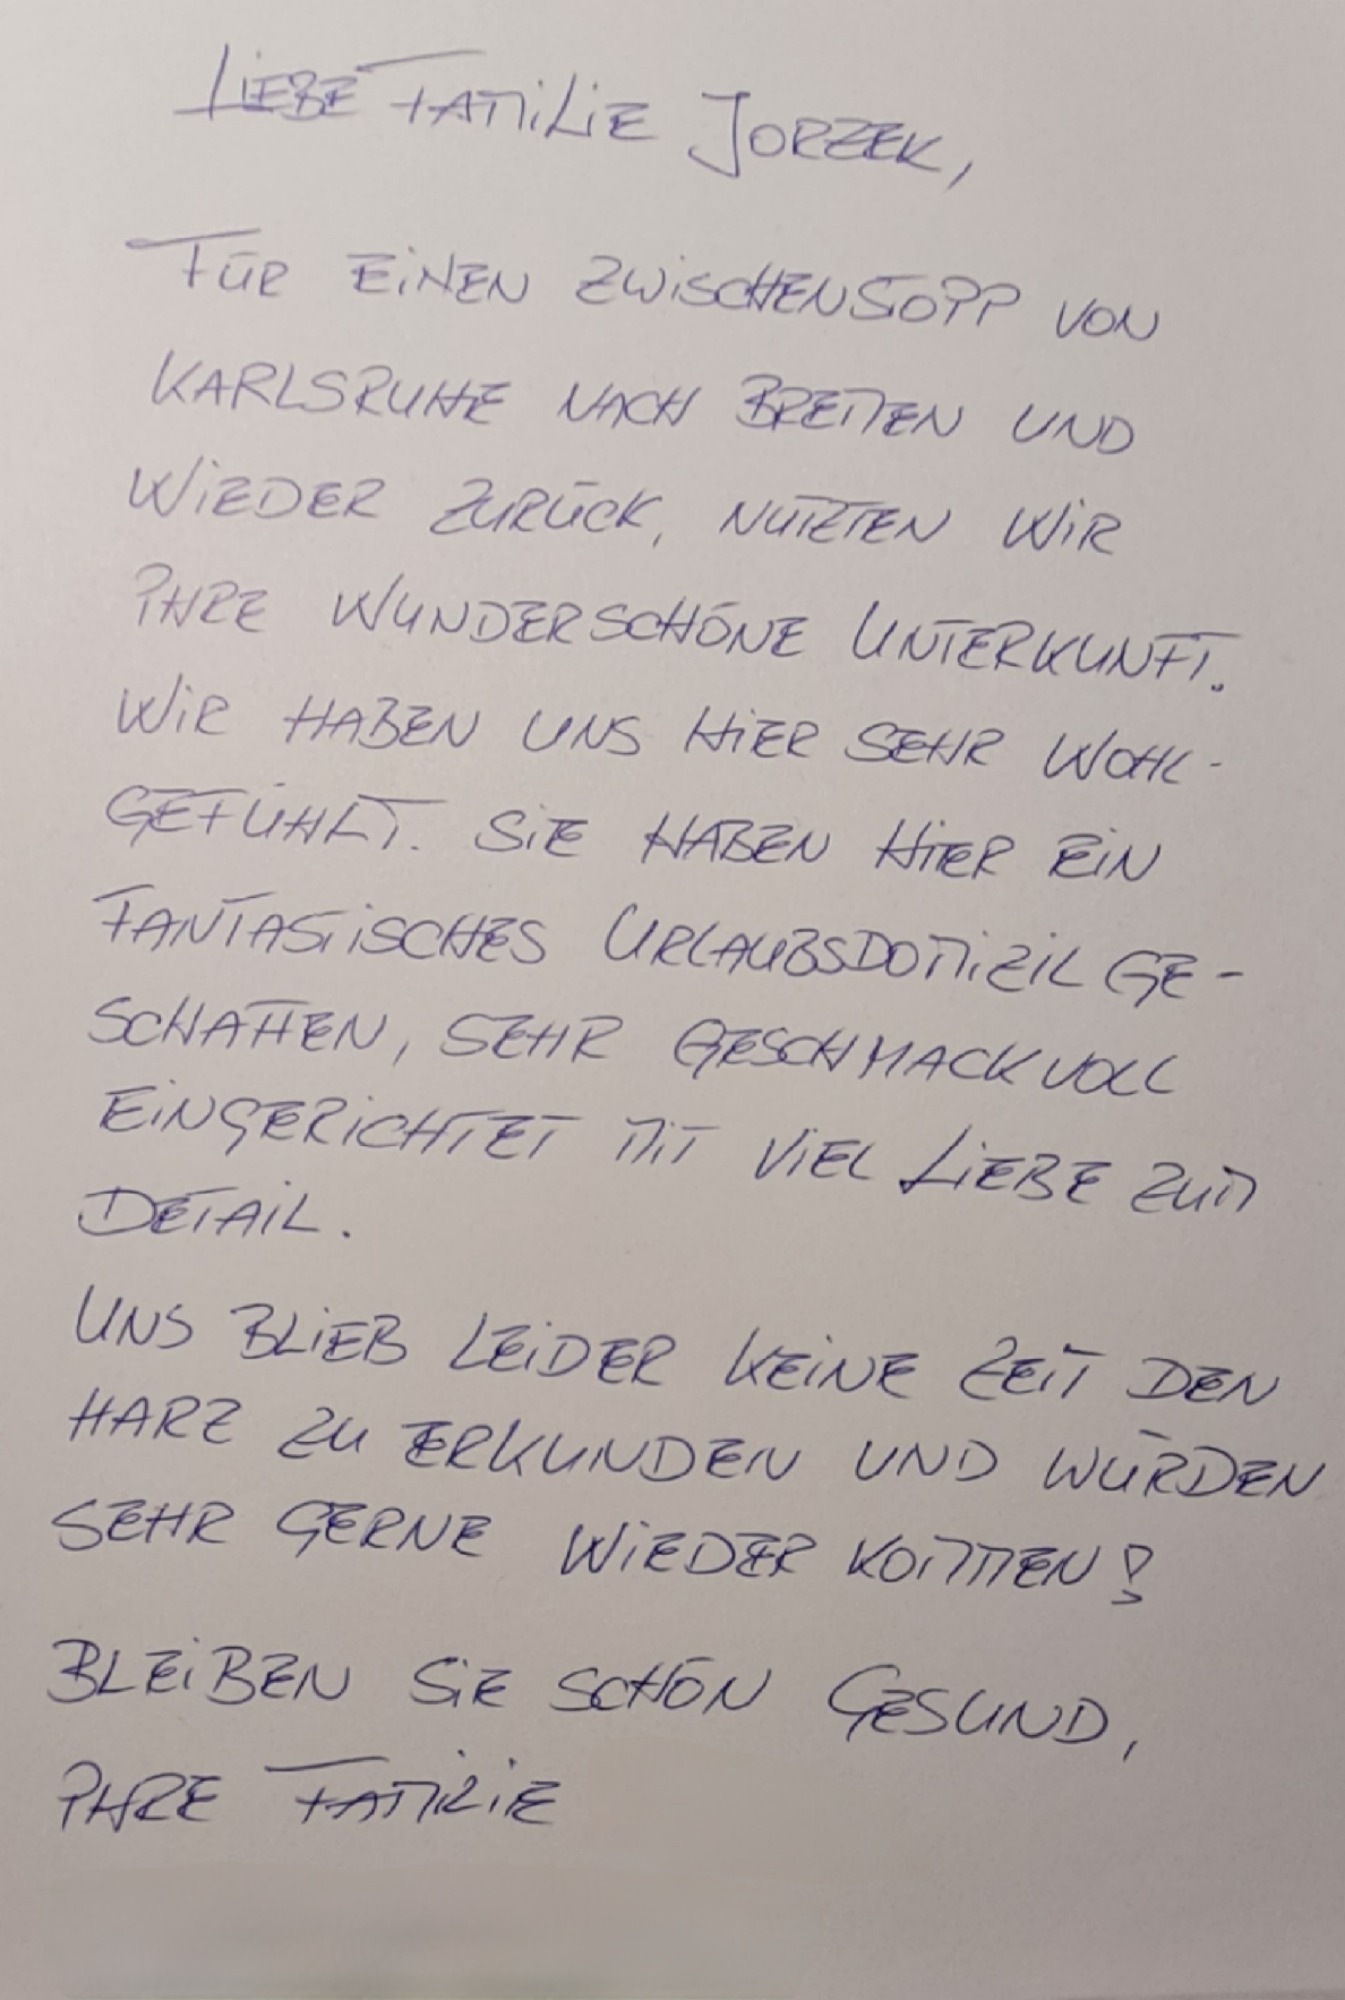 LIEBE FAMILIE JORZEK,
FÜR EINEN ZWISCHENSTOPP VON
KARLSRUHE NACH BREMEN UND
WIEDER ZURÜCK, NUTZTEN WIR
IHRE WUNDERSCHÖNE UNTERKUNFT.
WIR HABEN UNS HIER SEHR WOHL-
GEFÜHLT. SIE HABEN HIER EIN
FANTASTISCHES URLAUBSDOMIZIL GE-
SCHAFFEN, SEHR GESCHMACKVOLL
EINGERICHTET MIT VIEL LIEBE ZUM
DETAIL.
UNS BLIEB LEIDER KEINE ZEIT DEN
HARZ ZU ERKUNDEN UND WÜRDEN
SEHR GERNE WIEDER KOMMEN!
BLEIBEN SIE SCHÖN GESUND,
IHRE FAMILIE